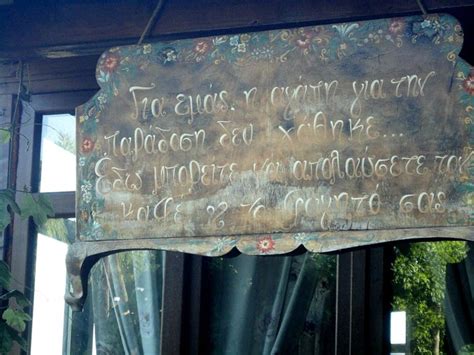 Για εμάς, η αγάπη για την
παράδοση δεν χάθηκε...
Εδώ μπορείτε να απολαύσετε τον
καφέ ή το φαγητό σας